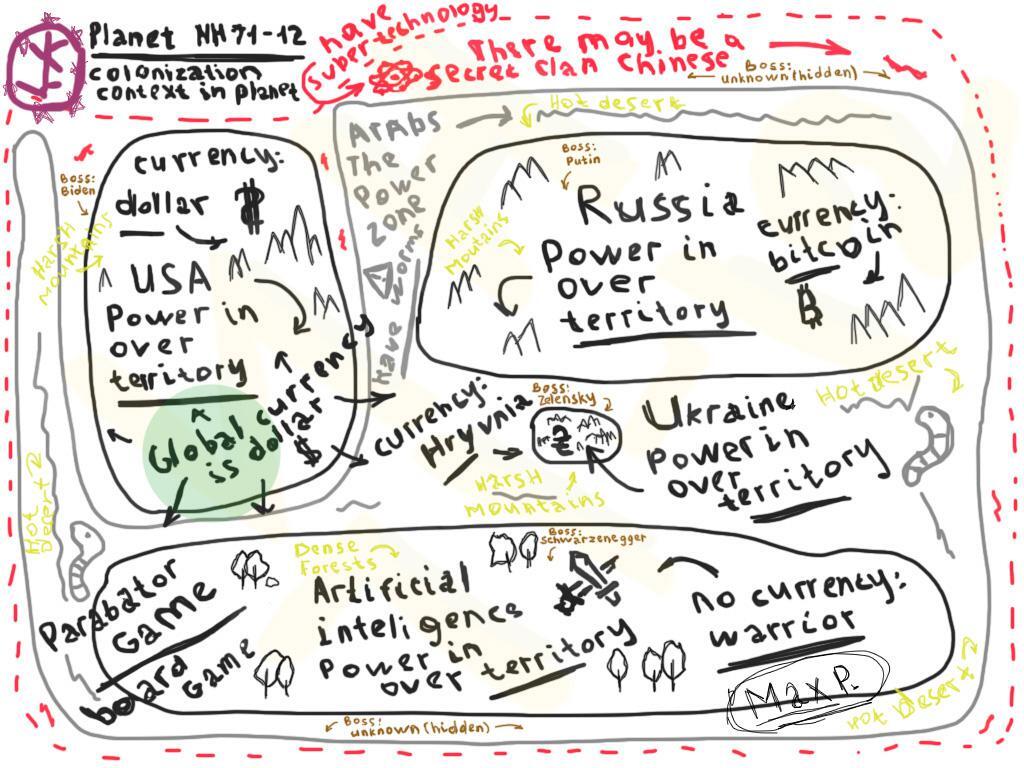 Planet NH71-12
colonization
context in planet
have
super technology
There may be a
secret clan Chinese
Boss:
unknown(hidden)
Hot desert
Arabs
The
Power
zone
Have worms
Boss:
Biden
Harsh
Mountains
currency:
dollar
USA
Power in
over
territory
Global currency
is dollar
$
Boss:
Putin
Harsh
Mountains
Russia
Power in
over
territory
currency:
bitcoin
Hot desert
currency:
Hryvnia
Boss:
Zelensky
₴
Harsh
Mountains
Ukraine
Power in
over
territory
Hot
Desert
Parabator
Game
board
Game
Dense
Forests
Boss:
Schwarzenegger
Artificial
inteligence
Power in
over territory
no currency:
warrior
Max P.
Hot desert
Boss:
unknown(hidden)